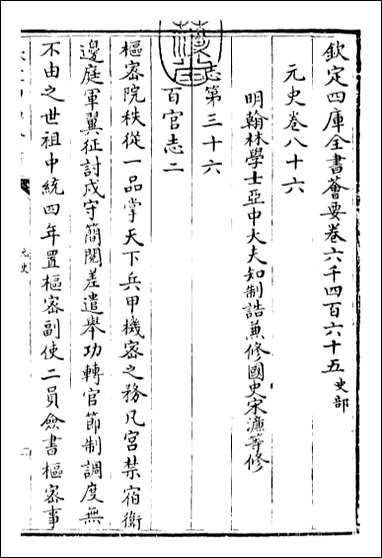 欽定四庫全書薈要卷六千四百六十五史部
元史卷八十六
明翰林學士亞中大夫知制誥兼修國史宋濂等修
志第三十六
百官志二
樞密院秩從一品掌天下兵甲機密之務凡宮禁宿衛
邊庭軍翼征討戍守簡閱差遣舉功轉官節制調度無
不由之世祖中統四年置樞密副使二員僉書樞密事
元史